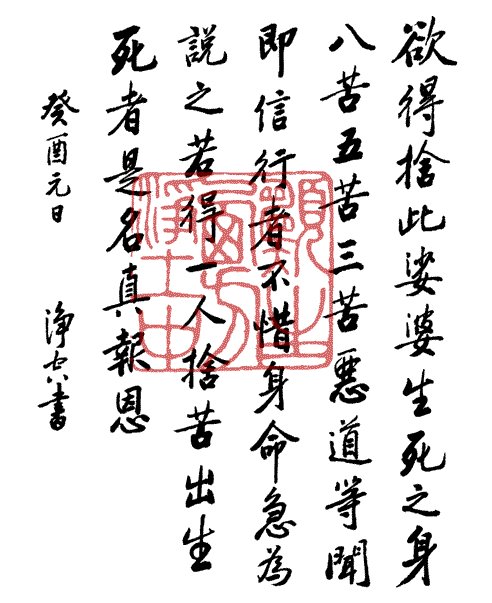 欲得捨此娑婆生死之身
八苦五苦三苦惡道等聞
即信行者不惜身命急為
說之若得一人捨苦出生
死者是名真報恩
癸酉元日 淨空書
願生
西方
淨土中